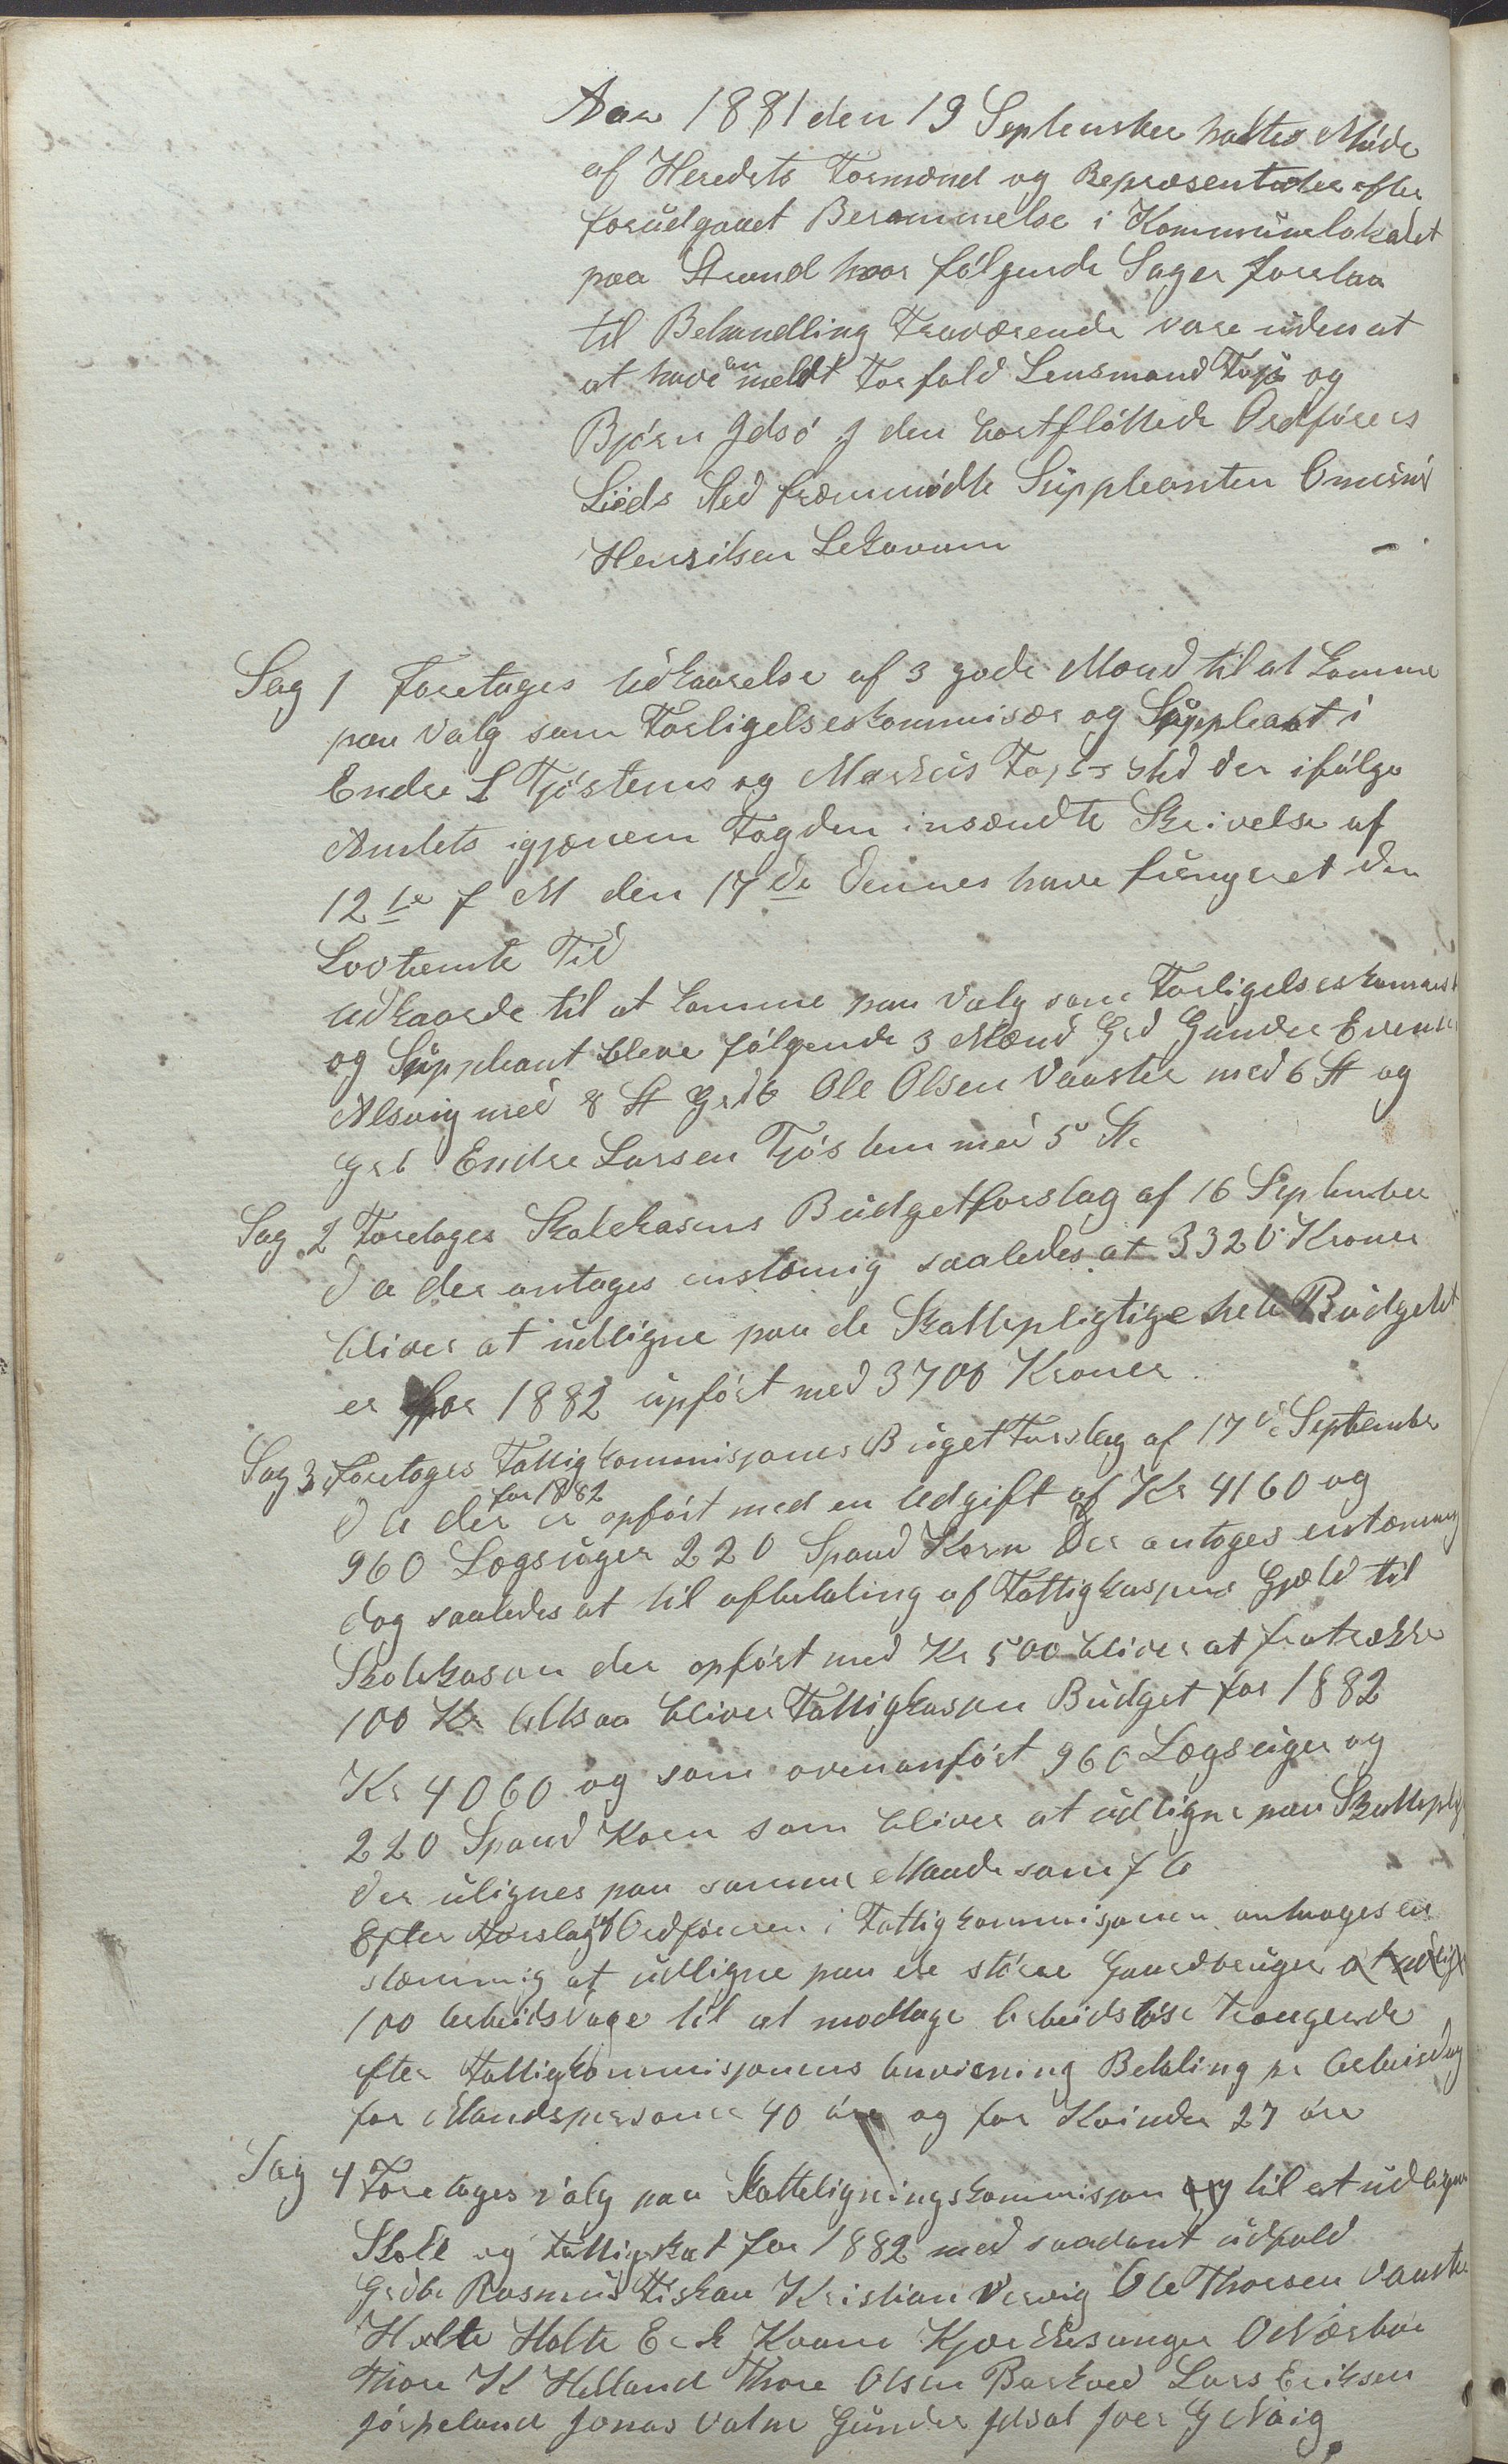 Aar 1881 den 19 September holtes Møde
af Heredets Formænd og Repræsentanter efter
forudgaaet Berammelse i Kommunelokalet
paa Strand hvor følgende Sager forelaa
til Behandling Fraværende vare uden at
at have anmeldt Forfald Lensmand Fajs og
Bjørn Idsø I den bortfløttede Ordførers
Sted fremmødte Suppleanten Omund
Henriksen Lekvam
Sag 1 Foretoges Udkaarelse af 3 gode Mænd til at komme
paa Valg som Forligelseskommisær og Suppleant i
Endre L Tjøstems og Markus Sted der ifølge
Amtets igjænem Fogden insændte Skrivelse af
12te f M den 17de dennes have fungeret den
Lovbemte Tid
Udkaarde til at komme paa Valg som Forligelseskommis
og Suppleant bleve følgende 3 Mænd Grd Gunder Evensen
Alsvig med 8 St Grdb Ole Olsen Vaaster med 6 St og
Grb Endre Larsen Tjøstem med 5 St
Sag 2 Foretoges Skolekasens Budgetforslag af 16 September
D a der antoges enstæmig saaledes at 3320 Kroner
bliver at udligne paa de Skattepligtige hele Budgetet
er for 1882 upført med 3700 Kroner
Sag 3 Foretoges Fattigkommisjones Buget Forslag af 17de September
D A der for 1882 er opført med en Udgift af Kr 4160 og
960 Lægsuger 220 Spand Korn Der antoges enstæmig
dog saaledes at til afbetaling af Fattigkasens Gjæld til
Skolekasen der opført med Kr 500 bliver at fratrække
100 Kr Altsaa bliver Fattigkasen Budget for 1882
Kr 4060 og som ovenanført 960 Lægsuger og
220 Spand Korn som bliver at udligne paa Skattepl
der ulignes paa samme Maade som f A
Efter Forslag af Ordføreren i Fattigkommisjonen antoges en
stæmmig at udligne paa de støree Gaardbruger at udlig
100 Arbeidsdage til at modtage Arbeidsløse trængende
efter Fattigkommisjonens Anvisning Betaling pr Arbeisdag
for Mandspersoner 40 øre og for Kvinder 27 øre
Sag 4 Foretoges valg paa Skatteligningskommisjon og til at udligne
Skole og Fattigskat for 1882 med saadant udfald
Grdbr Rasmus Fiskaa Kristian Vervig Ole Thorsen Vaaste
Holte Holta Erik Kvame Kjør O Nærbøe
Thore K Helland Thore Olsen Barkved Lars Eriksen
Jørpeland Jonas Vatne Gunder Idsal Iver G Nåig